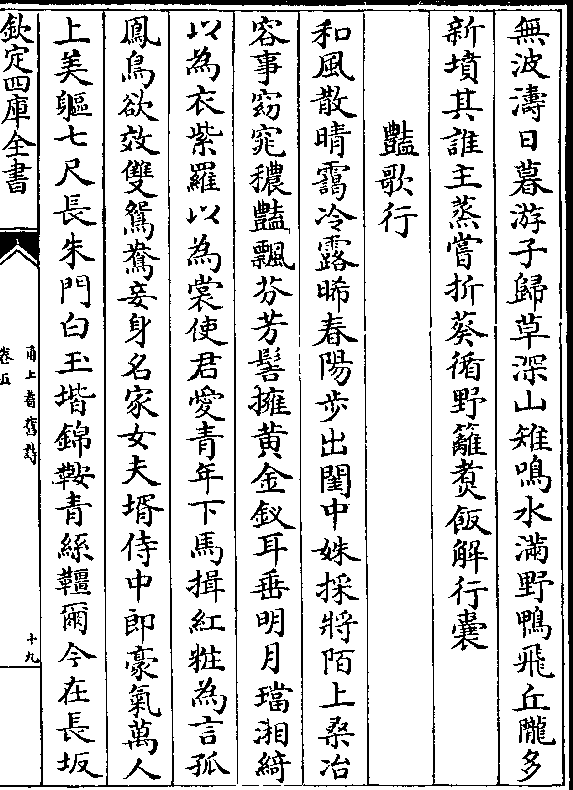 無波濤日暮游子歸草深山雉鳴水滿野鴨飛丘隴多
新墳其誰主蒸嘗折葵循野籬煑飯解行囊
豔歌行
和風散晴靄冷露晞春陽步出閨中姝採將陌上桑冶
容事窈窕穠豔飄芬芳髻擁黃金釵耳垂明月璫湘綺
以為衣紫羅以為裳使君愛青年下馬揖紅粧為言孤
鳳鳥欲效雙鴛鴦妾身名家女夫壻侍中郎豪氣萬人
上美軀七尺長朱門白玉堦錦鞍青絲韁爾今在長坂
欽定四庫全書
甬上耆舊詩
卷五
十九